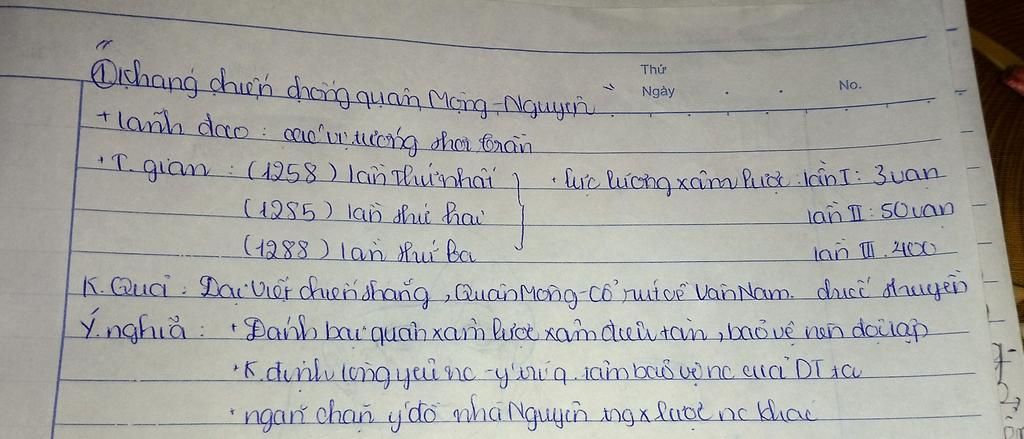 Thứ
Ngày No.
① Kháng chiến chống quân Mông-Nguyên
+ Lãnh đạo : các vị tướng thời Trần
T. gian : (1258) lần thứ nhất
(1285) lần thứ hai
(1288) lần thứ Ba
lực lượng xâm lược : lần I : 3 vạn
lần II : 50 vạn
lần III . 400
K. Quả : Đại Việt chiến thắng , Quân Mông-Cổ rút về Vân Nam. thuyền
Ý nghĩa : Đánh bại quân xâm lược xâm tàn , bảo vệ nền độc lập
K. định lòng yêu nc - ý tâm bảo vệ nc của DT ta
ngăn chặn ý đồ nhà Nguyên x lược nc khác